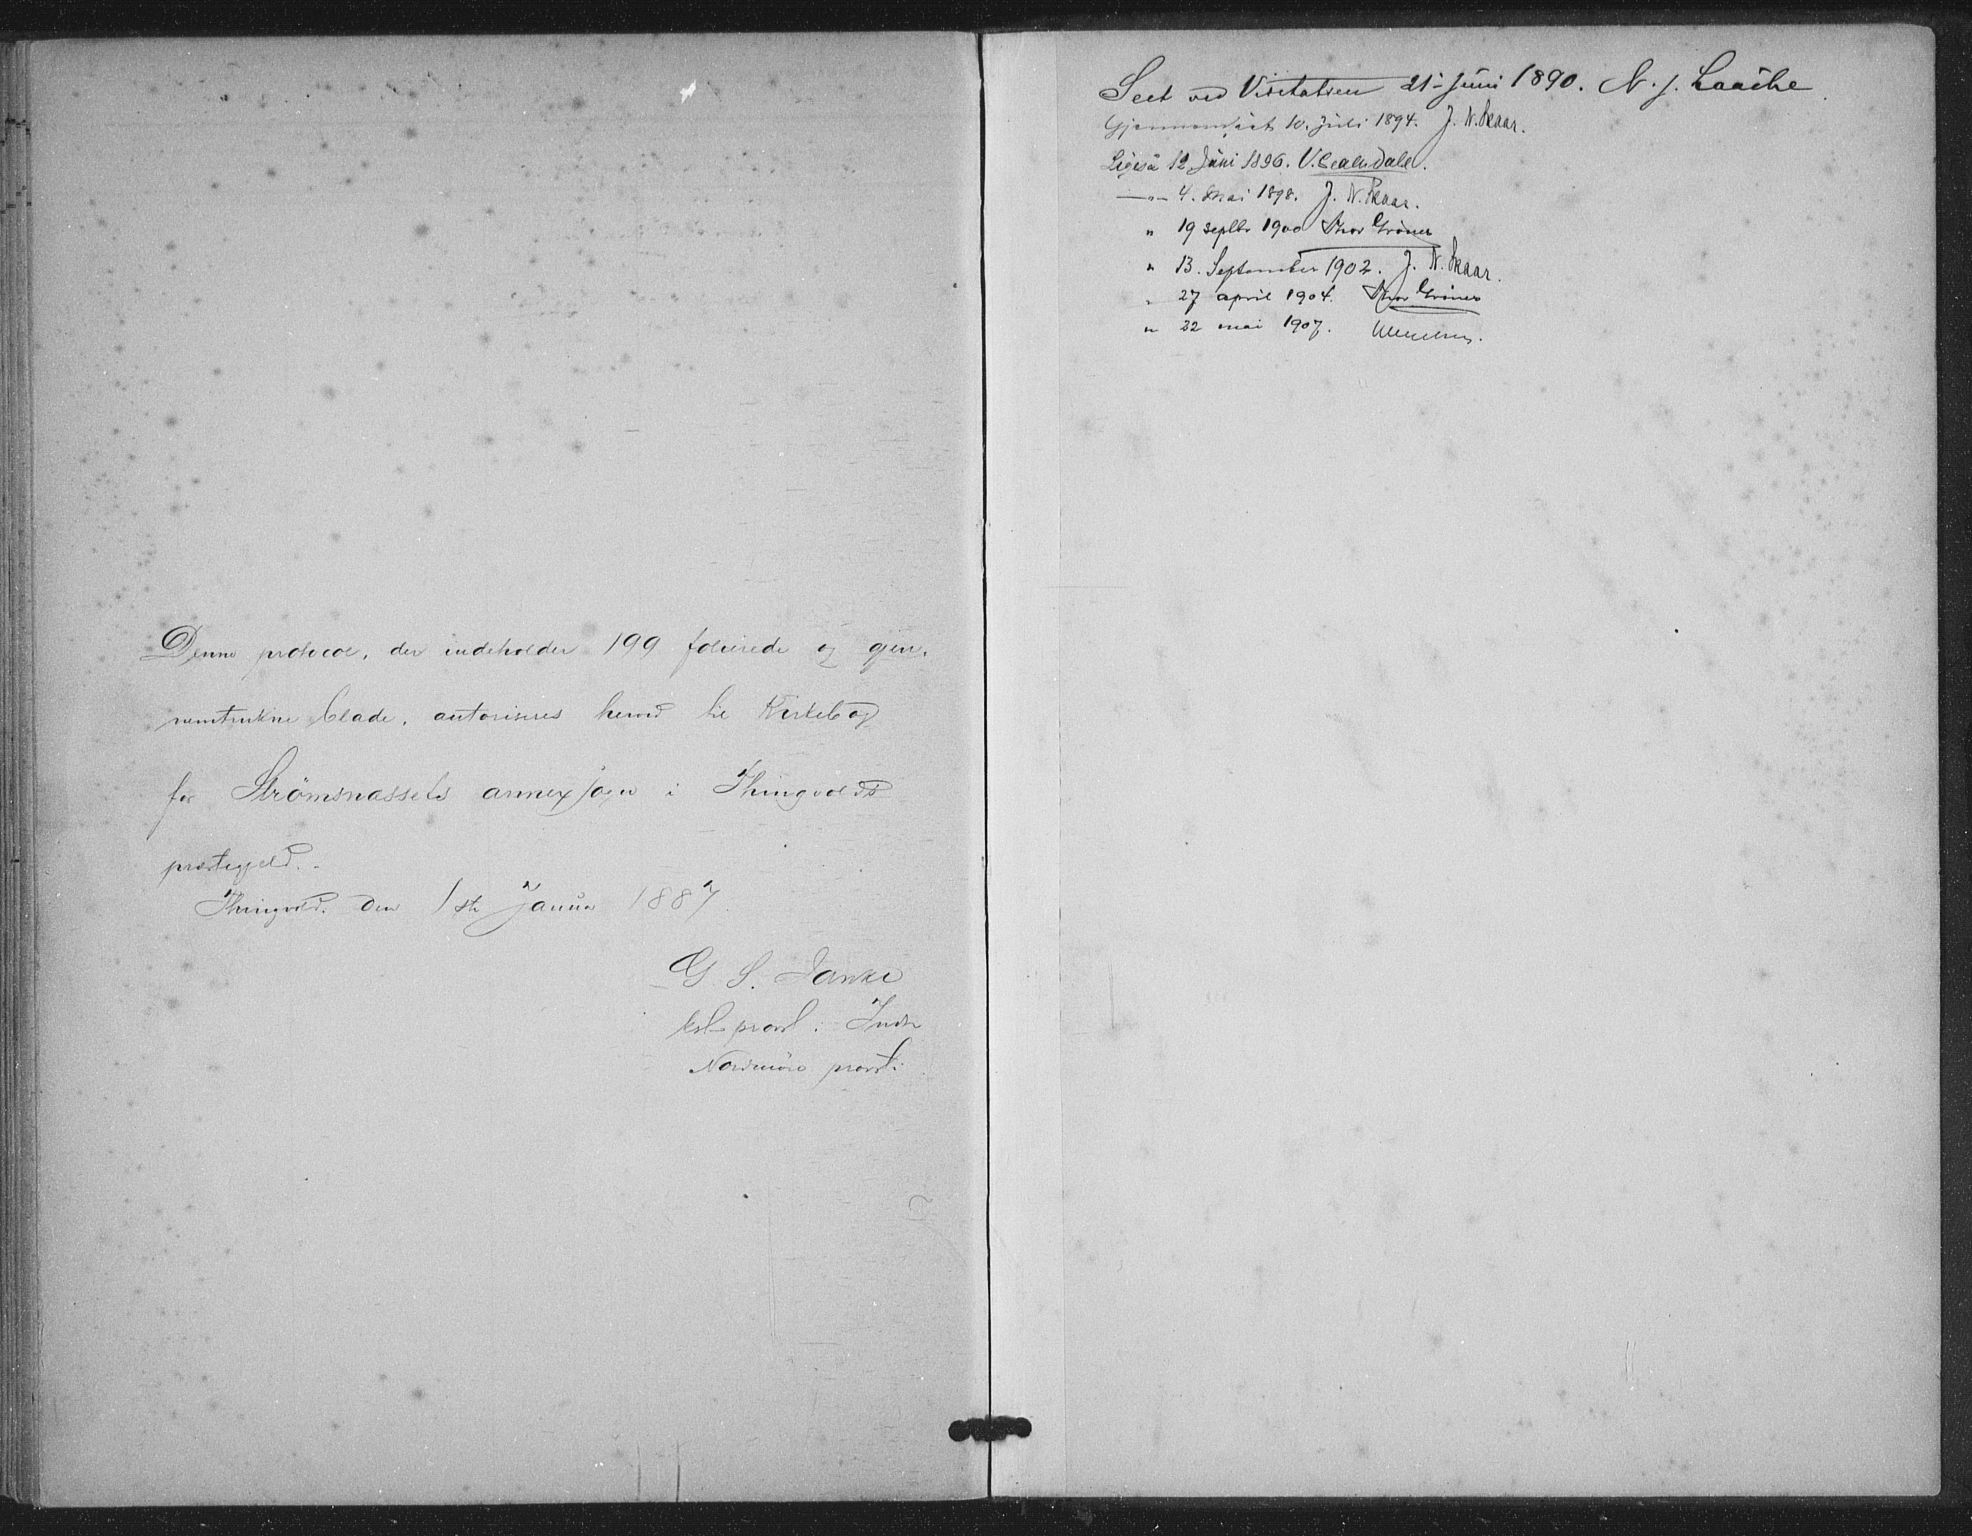 Denne protocol, der indeholder 199 folierede og gjen-
nemtrukne blade, autoriseres herved til Kirkebog
for Strömsnæssets annexsogn i Thingvolds
præstegjeld.
Thingvold den 1ste Januar 1887
G S. Janke
kst provst i Indre
Nordmöre provsti
Seet ved Visitatsen 21 Juni 1890. N. J. Laache
Gjennemseet 10. Juli 1894. J. N. Skaar.
Ligesaa 12 Juni 1896.
—"— 4. Mai 1898. J. N. Skaar.
" 19 septbr 1900 Thor Gröner
" 13. September 1902. J. N. Skaar.
" 27 april 1904. Thor Gröner
" 22 mai 1907.